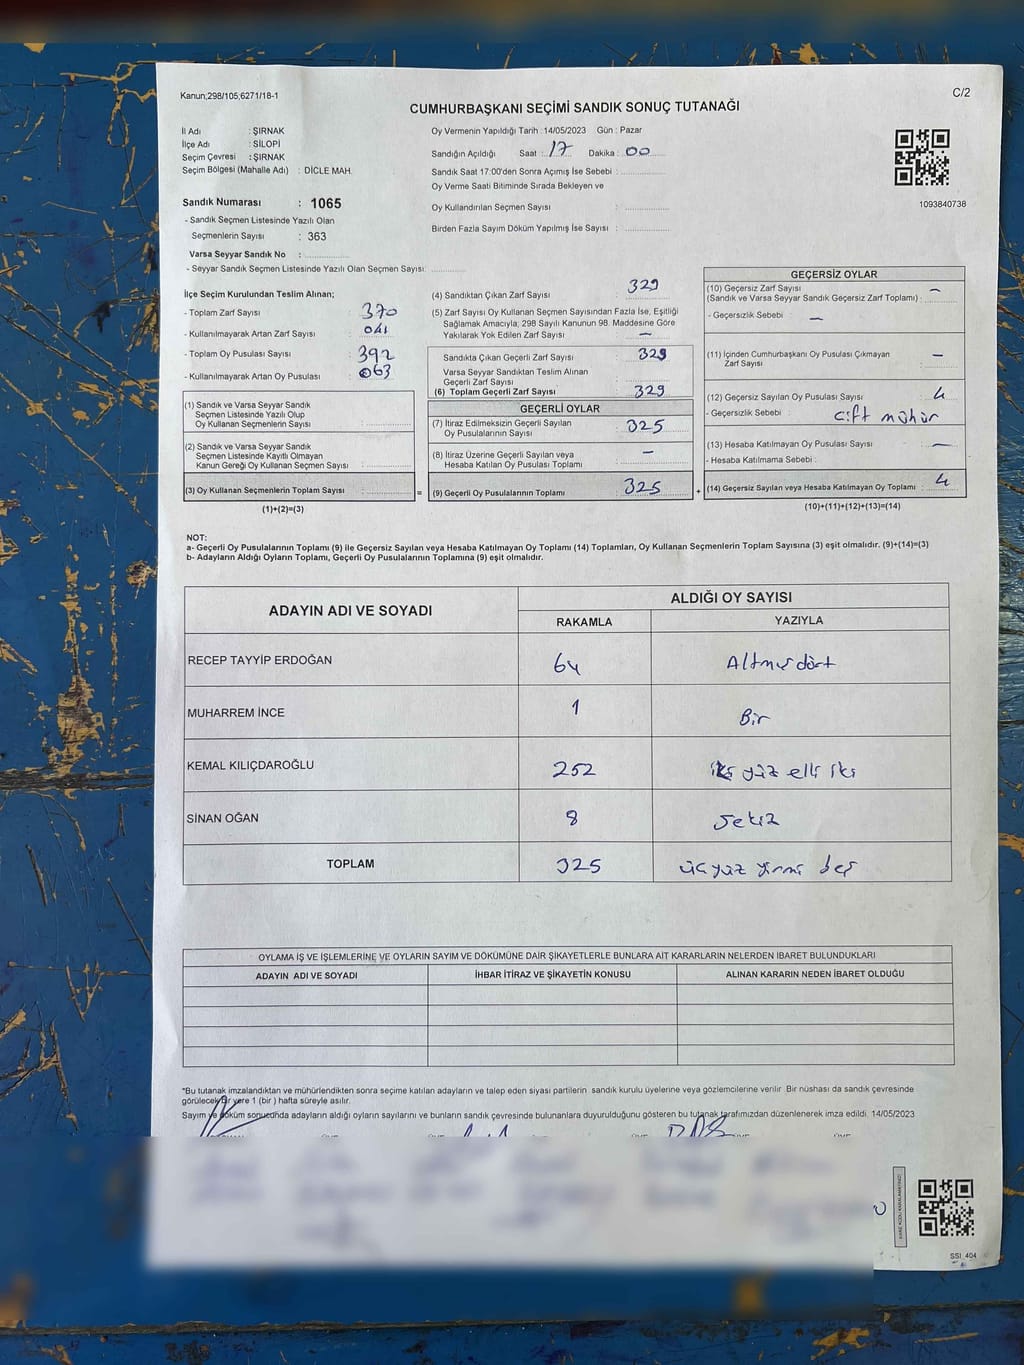 Kanun;298/105;6271/18-1
C/2
CUMHURBAŞKANI SEÇİMİ SANDIK SONUÇ TUTANAĞI
İl Adı : ŞIRNAK
İlçe Adı : SİLOPİ
Seçim Çevresi : ŞIRNAK
Seçim Bölgesi (Mahalle Adı) : DİCLE MAH.
Sandık Numarası : 1065
- Sandık Seçmen Listesinde Yazılı Olan
Seçmenlerin Sayısı : 363
Varsa Seyyar Sandık No :
- Seyyar Sandık Seçmen Listesinde Yazılı Olan Seçmen Sayısı:
Oy Vermenin Yapıldığı Tarih : 14/05/2023 Gün : Pazar
Sandığın Açıldığı Saat : 17 Dakika : 00
Sandık Saat 17:00'den Sonra Açımış İse Sebebi :
Oy Verme Saati Bitiminde Sırada Bekleyen ve
Oy Kullandırılan Seçmen Sayısı :
Birden Fazla Sayım Döküm Yapılmış İse Sayısı :
1093840738
İlçe Seçim Kurulundan Teslim Alınan;
- Toplam Zarf Sayısı : 370
- Kullanılmayarak Artan Zarf Sayısı : 041
- Toplam Oy Pusulası Sayısı : 392
- Kullanılmayarak Artan Oy Pusulası : 063
(1) Sandık ve Varsa Seyyar Sandık
Seçmen Listesinde Yazılı Olup
Oy Kullanan Seçmenlerin Sayısı :
(2) Sandık ve Varsa Seyyar Sandık
Seçmen Listesinde Kayıtlı Olmayan
Kanun Gereği Oy Kullanan Seçmen Sayısı :
(3) Oy Kullanan Seçmenlerin Toplam Sayısı :
(1)+(2)=(3)
(4) Sandıktan Çıkan Zarf Sayısı : 329
(5) Zarf Sayısı Oy Kullanan Seçmen Sayısından Fazla İse, Eşitliği
Sağlamak Amacıyla; 298 Sayılı Kanunun 98. Maddesine Göre
Yakılarak Yok Edilen Zarf Sayısı : —
Sandıkta Çıkan Geçerli Zarf Sayısı : 329
Varsa Seyyar Sandıktan Teslim Alınan
Geçerli Zarf Sayısı :
(6) Toplam Geçerli Zarf Sayısı : 329
GEÇERLİ OYLAR
(7) İtiraz Edilmeksizin Geçerli Sayılan
Oy Pusulalarının Sayısı : 325
(8) İtiraz Üzerine Geçerli Sayılan veya
Hesaba Katılan Oy Pusulası Toplamı : —
= (9) Geçerli Oy Pusulalarının Toplamı : 325
GEÇERSİZ OYLAR
(10) Geçersiz Zarf Sayısı : —
(Sandık ve Varsa Seyyar Sandık Geçersiz Zarf Toplamı)
- Geçersizlik Sebebi : —
(11) İçinden Cumhurbaşkanı Oy Pusulası Çıkmayan
Zarf Sayısı : —
(12) Geçersiz Sayılan Oy Pusulası Sayısı : 4
- Geçersizlik Sebebi : çift mühür
(13) Hesaba Katılmayan Oy Pusulası Sayısı : —
- Hesaba Katılmama Sebebi :
+ (14) Geçersiz Sayılan veya Hesaba Katılmayan Oy Toplamı : 4
(10)+(11)+(12)+(13)=(14)
NOT:
a- Geçerli Oy Pusulalarının Toplamı (9) ile Geçersiz Sayılan veya Hesaba Katılmayan Oy Toplamı (14) Toplamları, Oy Kullanan Seçmenlerin Toplam Sayısına (3) eşit olmalıdır. (9)+(14)=(3)
b- Adayların Aldığı Oyların Toplamı, Geçerli Oy Pusulalarının Toplamına (9) eşit olmalıdır.
ADAYIN ADI VE SOYADI
ALDIĞI OY SAYISI
RAKAMLA YAZIYLA
RECEP TAYYİP ERDOĞAN 64 Altmış dört
MUHARREM İNCE 1 Bir
KEMAL KILIÇDAROĞLU 252 iki yüz elli iki
SİNAN OĞAN 8 Sekiz
TOPLAM 325 üçyüz yirmi beş
OYLAMA İŞ VE İŞLEMLERİNE VE OYLARIN SAYIM VE DÖKÜMÜNE DAİR ŞİKAYETLERLE BUNLARA AİT KARARLARIN NELERDEN İBARET BULUNDUKLARI
ADAYIN ADI VE SOYADI İHBAR İTİRAZ VE ŞİKAYETİN KONUSU ALINAN KARARIN NEDEN İBARET OLDUĞU
*Bu tutanak imzalandıktan ve mühürlendikten sonra seçime katılan adayların ve talep eden siyasi partilerin sandık kurulu üyelerine veya gözlemcilerine verilir Bir nüshası da sandık çevresinde
görülecek bir yere 1 (bir ) hafta süreyle asılır.
Sayım ve döküm sonucunda adayların aldığı oyların sayılarını ve bunların sandık çevresinde bulunanlara duyurulduğunu gösteren bu tutanak tarafımızdan düzenlenerek imza edildi. 14/05/2023
SSI_404